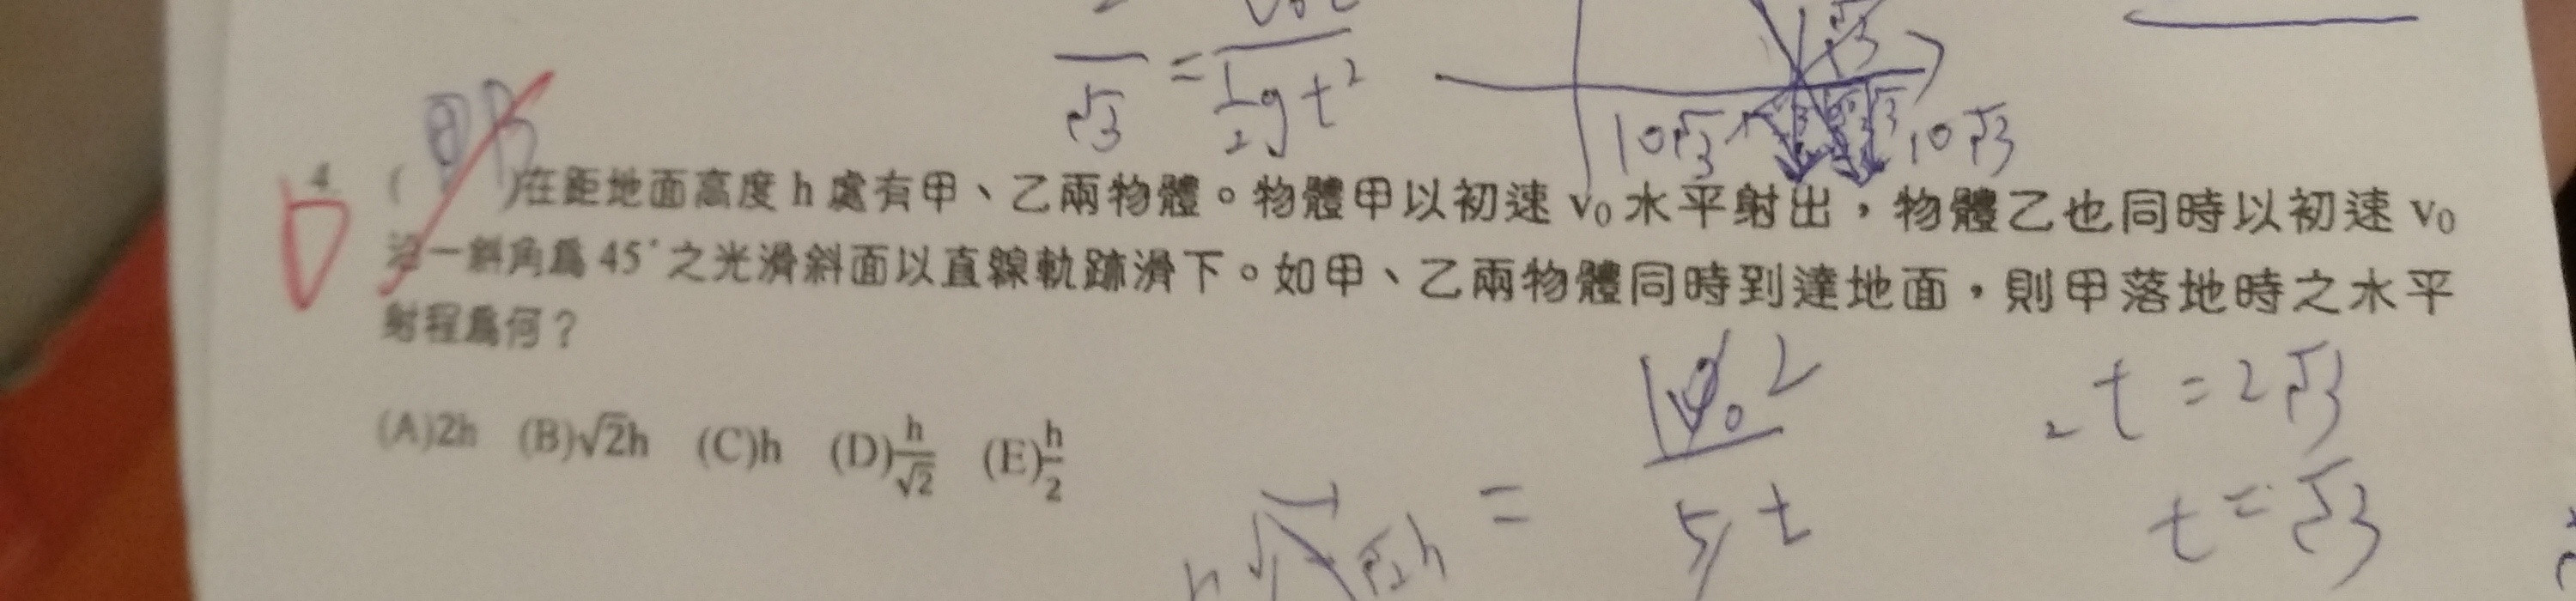 √3 = ½gt²
10√3 10√3
D
4. ( )在距地面高度 h 處有甲、乙兩物體。物體甲以初速 v₀ 水平射出，物體乙也同時以初速 v₀
沿一斜角為 45°之光滑斜面以直線軌跡滑下。如甲、乙兩物體同時到達地面，則甲落地時之水平
射程為何？
(A)2h (B)√2h (C)h (D)h/√2 (E)h/2
t = 2√3
√2h = 5t
t = √3